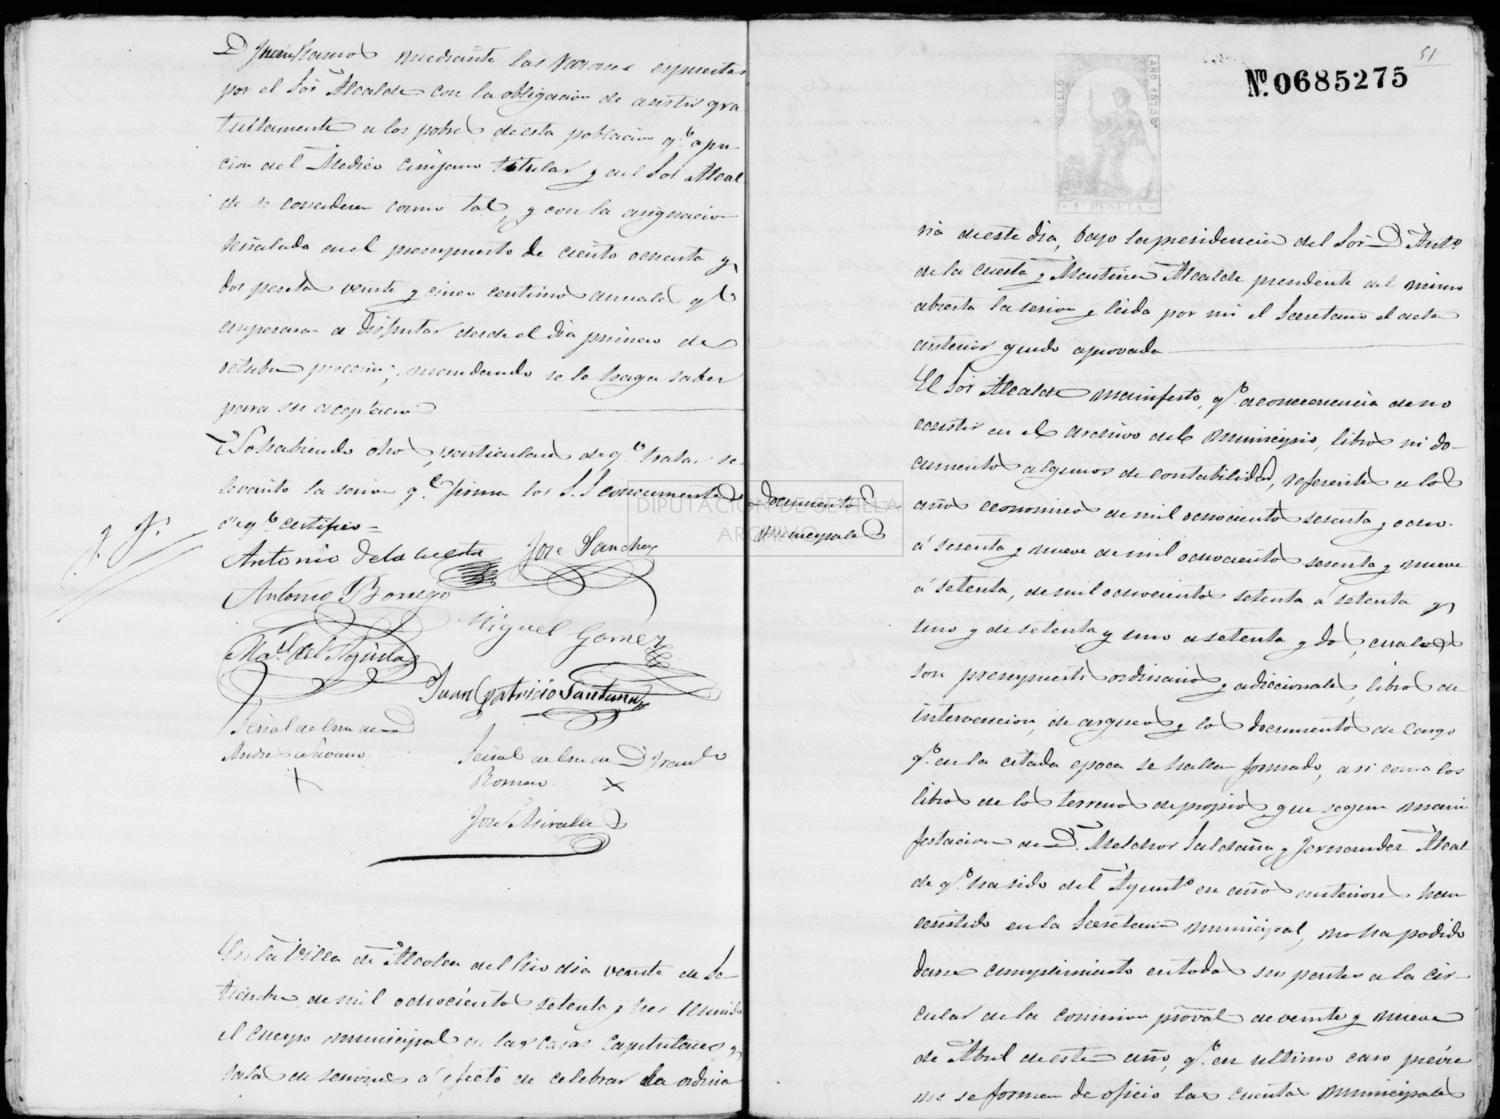 D Juan Ramos mediante las razones espuestas
por el Sor Alcalde con la obligacion de asistir gra
tuitamente a los pobres de esta poblacion qe. a jui-
cio del Medico cirujano titular y del Sor Alcal
de se consideren como tal, y con la asignacion
señalada en el presupuesto de ciento ochenta y
dos pesetas veinte y cinco centimos anuales qe
empesara a disfrutar desde el dia primero de
octubre procsimo; mandando se le haga saber
para su aceptacion
No habiendo otros particulares de qe. tratar se
levanto la sesion qe. firman los S.S concurrentes
de qe certifico=
Antonio de la Cuesta Jose Sanchez
Antonio Borrego
Miguel Gomez
Mal. del Aguila
Juan Patricio Santana
Señal de la mano de
Andres
Señal de la mano de D Franco
Romero
Jose
En la Villa de Alcolea del Rio dia veinte de Se-
tiembre de mil ochocientos setenta y tres reunido
el cuerpo municipal en las casas capitulares y
sala de sesiones a efecto de celebrar la ordina
51
No. 0685275
SELLO
AÑO 1873
PESETA
ria de este dia, bajo la presidencia del Sor. D Anto.
de la Cuesta y Martinez Alcalde presidente del mismo
abierta la sesion y leida por mi el Secretario el acta
anterior quedo aprovada
El Sor Alcalde manifesto, qe. a consecuencia de no
ecsistir en el archivo del municipio, libros ni do-
cumentos algunos de contabilidad, referentes a los
Documentos
municipales
años economicos de mil ochocientos sesenta y ocho
á sesenta y nueve de mil ochocientos sesenta y nueve
á setenta, de mil ochocientos setenta á setenta y
uno y de setenta y uno a setenta y dos, cuales
son presupuestos ordinarios y adiccionales, libros de
intervencion, de arqueos y los documentos de cargo
qe. en la citada epoca se hallan formados, asi como los
libros de los terrenos de propios que segun mani
festacion de D. Melchor Saldaña y Fernandez Alcal
de qe. ha sido del Ayunto. en años anteriores han
ecsistido en la Secretaria municipal, no ha podido
darse cumplimiento en todas sus partes a la cir-
cular de la comision proãl de veinte y nueve
de Abril de este año, qe. en ultimo caso previe
ne se formen de oficio las cuentas municipales
DIPUTACIÓN DE SEVILLA
ARCHIVO